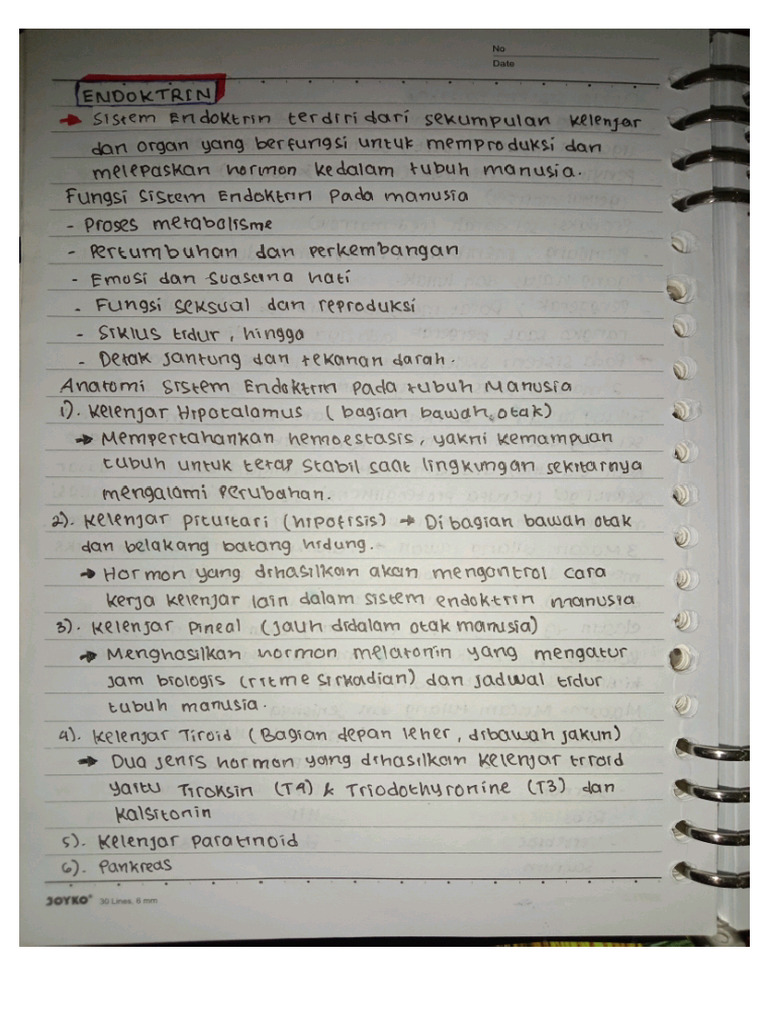 No
Date
ENDOKTRIN
→ Sistem Endoktrin terdiri dari sekumpulan kelenjar
dan organ yang berfungsi untuk memproduksi dan
melepaskan hormon kedalam tubuh manusia.
Fungsi Sistem Endoktrin Pada manusia
- Proses metabolisme
- Pertumbuhan dan perkembangan
- Emosi dan Suasana hati
- Fungsi seksual dan reproduksi
- Siklus tidur, hingga
- Detak jantung dan tekanan darah.
Anatomi Sistem Endoktrin Pada tubuh Manusia
1). Kelenjar Hipotalamus (bagian bawah otak)
→ Mempertahankan hemoestasis, yakni kemampuan
tubuh untuk tetap stabil saat lingkungan sekitarnya
mengalami perubahan.
2). Kelenjar Pituitari (hipofisis) → Di bagian bawah otak
dan belakang batang hidung.
→ Hormon yang dihasilkan akan mengontrol cara
kerja kelenjar lain dalam sistem endoktrin manusia
3). Kelenjar Pineal (jauh didalam otak manusia)
→ Menghasilkan hormon melatonin yang mengatur
jam biologis (ritme sirkadian) dan jadwal tidur
tubuh manusia.
4). Kelenjar Tiroid (Bagian depan leher, dibawah jakun)
→ Dua jenis hormon yang dihasilkan kelenjar tiroid
yaitu Tiroksin (T4) & Triodothyronine (T3) dan
Kalsitonin
5). Kelenjar Paratiroid
6). Pankreas
JOYKO® 30 Lines, 6 mm